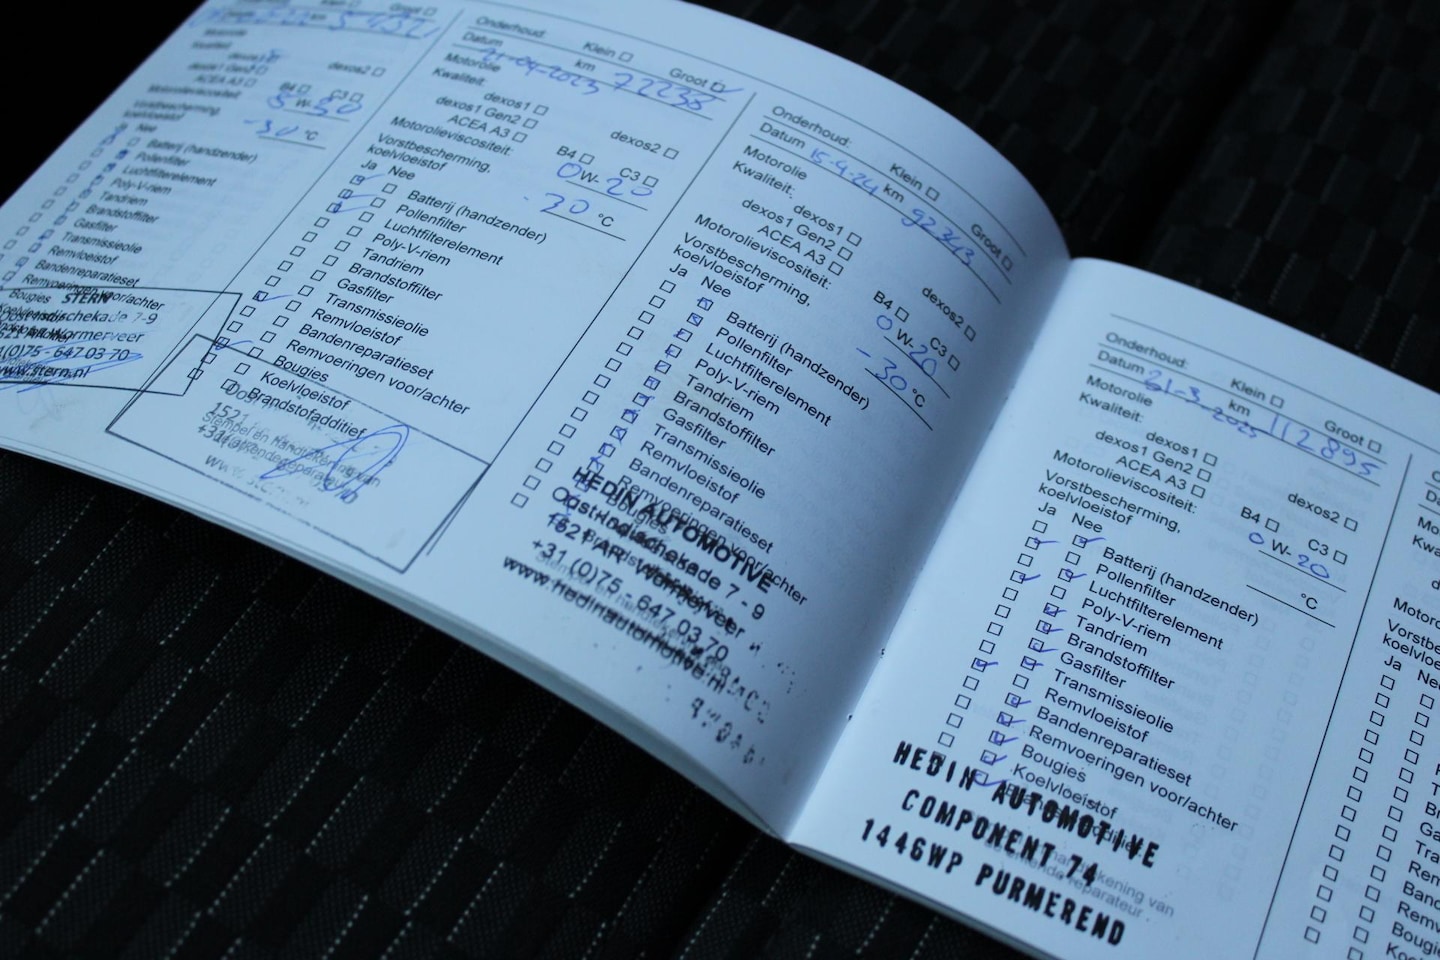 km 5
dexos1
dexos1 Gen2
ACEA A3
dexos2
B4
C3
Motorolieviscositeit:
5 W- 30
Vorstbescherming,
koelvloeistof
-30 °C
Nee
Batterij (handzender)
Pollenfilter
Luchtfilterelement
Poly-V-riem
Tandriem
Brandstoffilter
Gasfilter
Transmissieolie
Remvloeistof
Bandenreparatieset
Remvoeringen voor/achter
Bougies
STERN
Oostindischekade 7-9
Wormerveer
(0)75 - 647 03 70
www.stern.nl
Onderhoud: Klein Groot
Datum km 72238
Motorolie
Kwaliteit:
dexos1
dexos1 Gen2
ACEA A3
dexos2
Motorolieviscositeit:
B4 C3
0 W- 20
Vorstbescherming,
koelvloeistof
-30 °C
Ja Nee
Batterij (handzender)
Pollenfilter
Luchtfilterelement
Poly-V-riem
Tandriem
Brandstoffilter
Gasfilter
Transmissieolie
Remvloeistof
Bandenreparatieset
Remvoeringen voor/achter
Bougies
Koelvloeistof
Brandstofadditief
1521
Onderhoud: Klein Groot
Datum 15-4-24 km 92343
Motorolie
Kwaliteit:
dexos1
dexos1 Gen2
ACEA A3
dexos2
Motorolieviscositeit:
B4 C3
0 W- 20
Vorstbescherming,
koelvloeistof
-30 °C
Ja Nee
Batterij (handzender)
Pollenfilter
Luchtfilterelement
Poly-V-riem
Tandriem
Brandstoffilter
Gasfilter
Transmissieolie
Remvloeistof
Bandenreparatieset
Remvoeringen voor/achter
Bougies
HEDIN AUTOMOTIVE
Oostindischekade 7 - 9
1521 AR Wormerveer
+31 (0)75 - 647 03 70
www.hedinautomotive.nl
Onderhoud: Klein Groot
Datum 31-3-2025 km 112895
Motorolie
Kwaliteit:
dexos1
dexos1 Gen2
ACEA A3
dexos2
Motorolieviscositeit:
B4 C3
0 W- 20
Vorstbescherming,
koelvloeistof
°C
Ja Nee
Batterij (handzender)
Pollenfilter
Luchtfilterelement
Poly-V-riem
Tandriem
Brandstoffilter
Gasfilter
Transmissieolie
Remvloeistof
Bandenreparatieset
Remvoeringen voor/achter
Bougies
Koelvloeistof
HEDIN AUTOMOTIVE
COMPONENT 74
1446WP PURMEREND
Ja